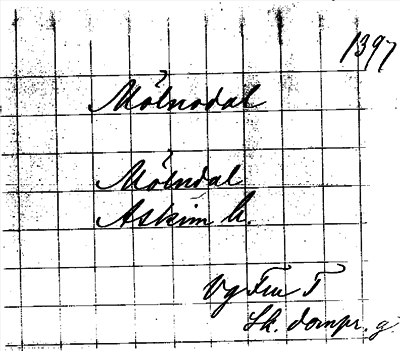 1397
Mölnodal
Mölndal
Askim h.
Vg Fru T
Sk. dompr. g.